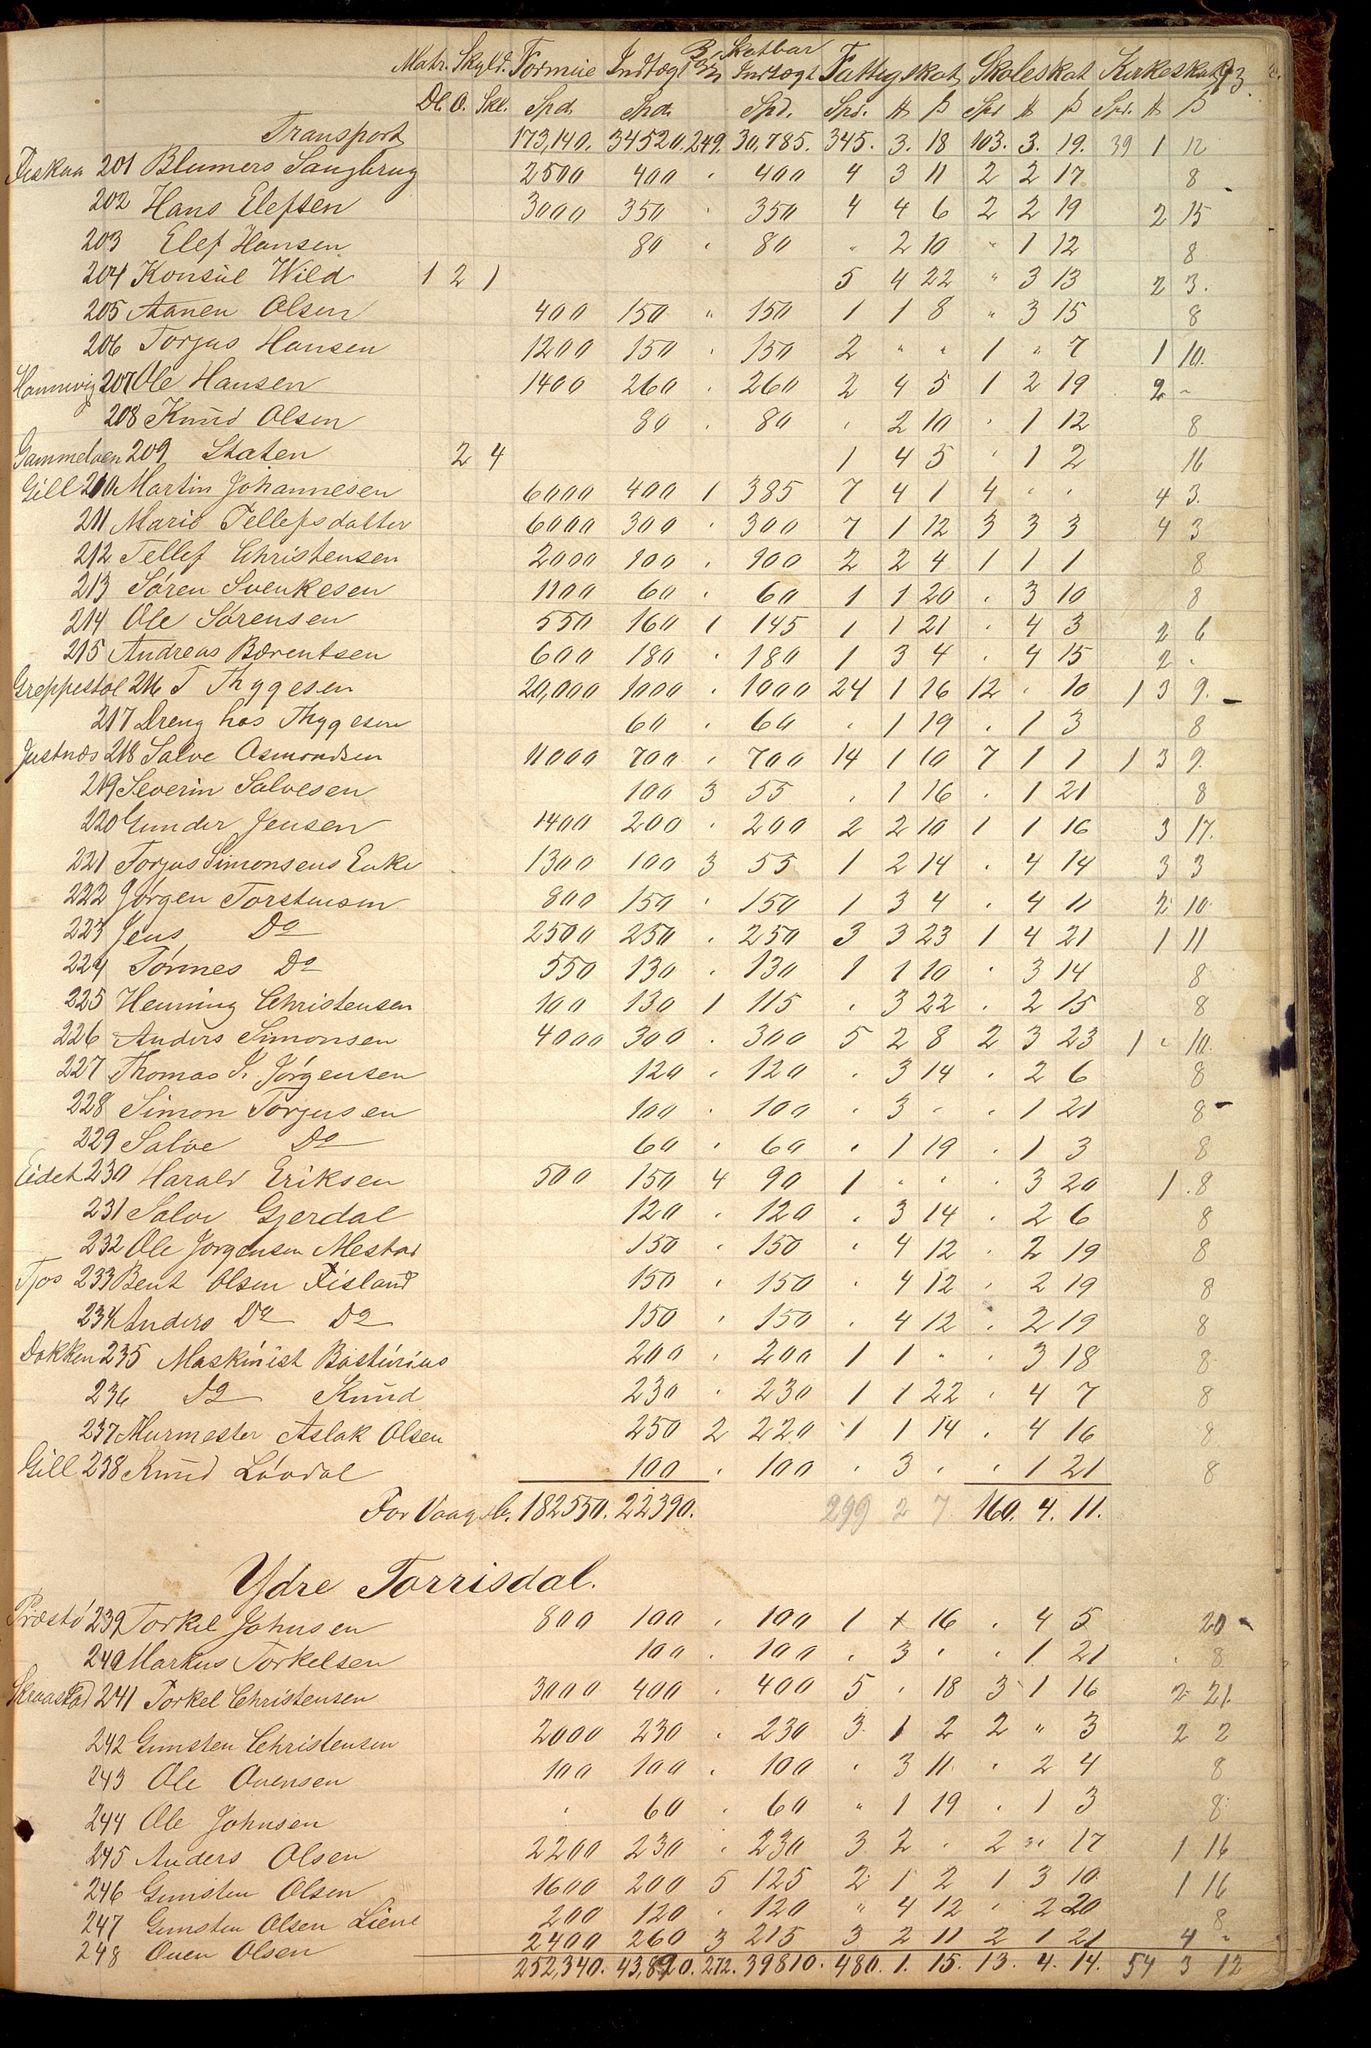 Matr. Skyld. Formue Indtægt Skatbar Indtægt Fattigskat Skoleskat Kirkeskat
Dl. O. Skl. Spd. Spd. Spd. Spd. Spd. Spd.
Transport 173,140. 34520. 249. 30,785. 345. 3. 18 103. 3. 19. 39 1 12
Fiskaa 201 Blumers Saugbrug 2500 400 " 400 4 3 11 2 2 17 8
202 Hans Elefsen 3000 350 " 350 4 4 6 2 2 19 2 15
203 Elef Hansen 80 " 80 " 2 10 " 1 12 8
204 Konsul Wild 1 2 1 5 4 22 " 3 13 2 3.
205 Aanen Olsen 400 150 " 150 1 1 8 " 3 15 8
206 Torjus Hansen 1200 150 " 150 2 " " 1 " 7 1 10.
Hannevig 207 Ole Hansen 1400 260 " 260 2 4 5 1 2 19 2 "
208 Knud Olsen 80 " 80 " 2 10 " 1 12 8
Gammeloen 209 Staten 2 4 1 4 5 " 1 2 16
Gill 210 Martin Johannesen 6000 400 1 385 7 4 1 4 " " 4 3.
211 Marie Tellefsdatter 6000 300 " 300 7 1 12 3 3 3 4 3
212 Tellef Christensen 2000 100 " 100 2 2 4 1 1 1 8
213 Søren Svenkesen 1100 60 " 60 1 1 20 " 3 10 8
214 Ole Sørensen 550 160 1 145 1 1 21 " 4 3 2 6
215 Andreas Bærentsen 600 180 " 180 1 3 4 " 4 15 2 "
Greppestøl 216 T Thygesen 20,000 1000 " 1000 24 1 16 12 " 10 1 3 9.
217 Dreng hos Thygesen 60 " 60 " 1 19 " 1 3 8
Justnæs 218 Salve Osmondsen 11000 700 " 700 14 1 10 7 1 1 1 3 9.
219 Severin Salvesen 100 3 55 " 1 16 " 1 21 8
220 Gunder Jensen 1400 200 " 200 2 2 10 1 1 16 3 17.
221 Torjus Simonsens Enke 1300 100 3 55 1 2 14 " 4 14 3 3
222 Jørgen Torstensen 800 150 " 150 1 3 4 " 4 11 2 10
223 Jens Do 2500 250 " 250 3 3 23 1 4 21 1 11
224 Tønnes Do 550 130 " 130 1 1 10 " 3 14 8
225 Henning Christensen 100 130 1 115 " 3 22 " 2 15 8
226 Anders Simonsen 4000 300 " 300 5 2 8 2 3 23 1 " 10.
227 Thomas J. Jørgensen 120 " 120 " 3 14 " 2 6 8
228 Simon Torjusen 100 " 100 " 3 " " 1 21 8
229 Salve Do 60 " 60 " 1 19 " 1 3 8
Eidet 230 Harald Eriksen 500 150 4 90 1 " " " 3 20 1 8
231 Salve Gjerdal 120 " 120 " 3 14 " 2 6 8
232 Ole Jørgensen Mestad 150 " 150 " 4 12 " 2 19 8
Tjos 233 Bent Olsen Fisland 150 " 150 " 4 12 " 2 19 8
234 Anders Do Do 150 " 150 " 4 12 " 2 19 8
Dokken 235 Maskinist Bastürius 200 " 200 1 1 " " 3 18 8
236 Do Knud 230 " 230 1 1 22 " 4 7 8
237 Murmester Aslak Olsen 250 2 220 1 1 14 " 4 16 8
Gill 238 Knud Løvdal 100 " 100 " 3 " " 1 21 8
For Vaagsb. 182550. 22390. 299 2 7 160. 4. 11.
Ydre Torrisdal.
Præstø 239 Torkel Johnsen 800 100 " 100 1 + 16 " 4 5 20
240 Markus Torkelsen 100 " 100 " 3 " " 1 21 " 8
Skraastad 241 Torkel Christensen 3000 400 " 400 5 " 18 3 1 16 2 21
242 Gunsten Christensen 2000 230 " 230 3 1 2 2 " 3 2 2
243 Ole Ovensen 100 100 " 100 " 3 11 " 2 4 8
244 Ole Johnsen " 60 " 60 " 1 19 " 1 3 8
245 Anders Olsen 2200 230 " 230 3 2 " 2 " 17 1 16
246 Gunsten Olsen 1600 200 5 125 2 1 2 1 3 10 1 16
247 Gunsten Olsen Liene 200 120 " 120 " 4 12 " 2 20 8
248 Oven Olsen 2400 260 3 215 3 2 11 2 1 21 4 "
252,340. 43,890. 272. 39810. 480. 1. 15. 13. 4. 14. 54 3 12